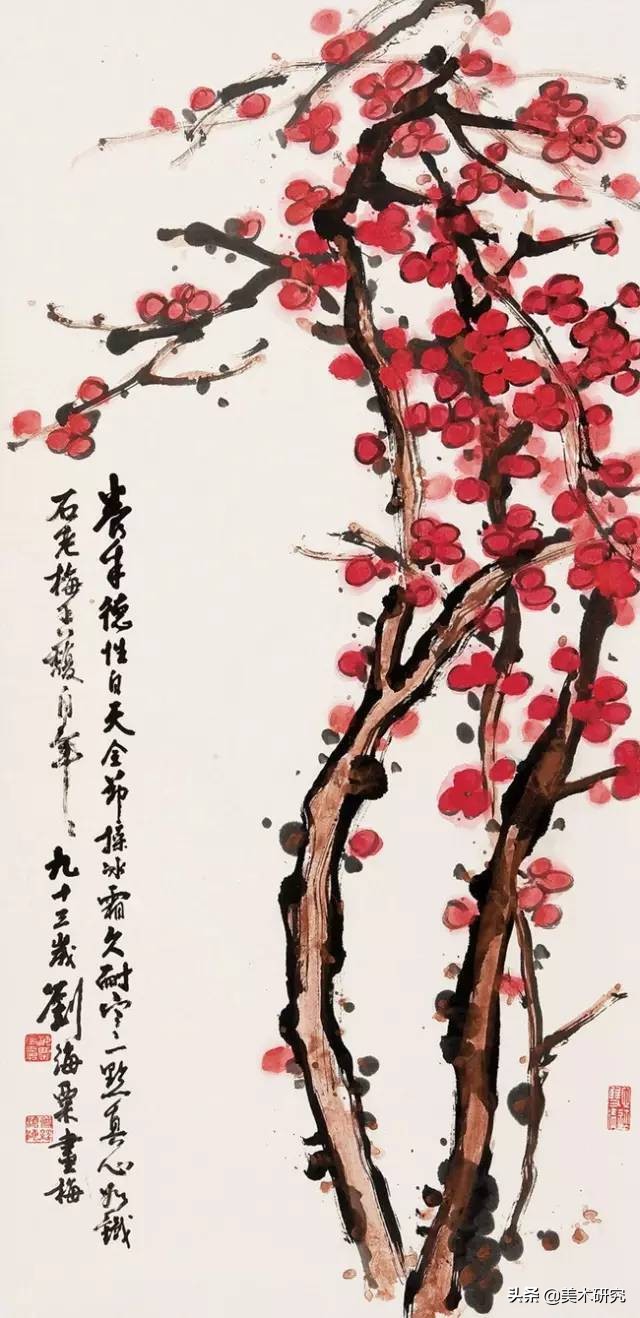 養德性自天全節操冰霜久耐寒一點真心如鐵
石老梅香馥自年々九十三歲劉海粟畫梅
头条 @美术研究